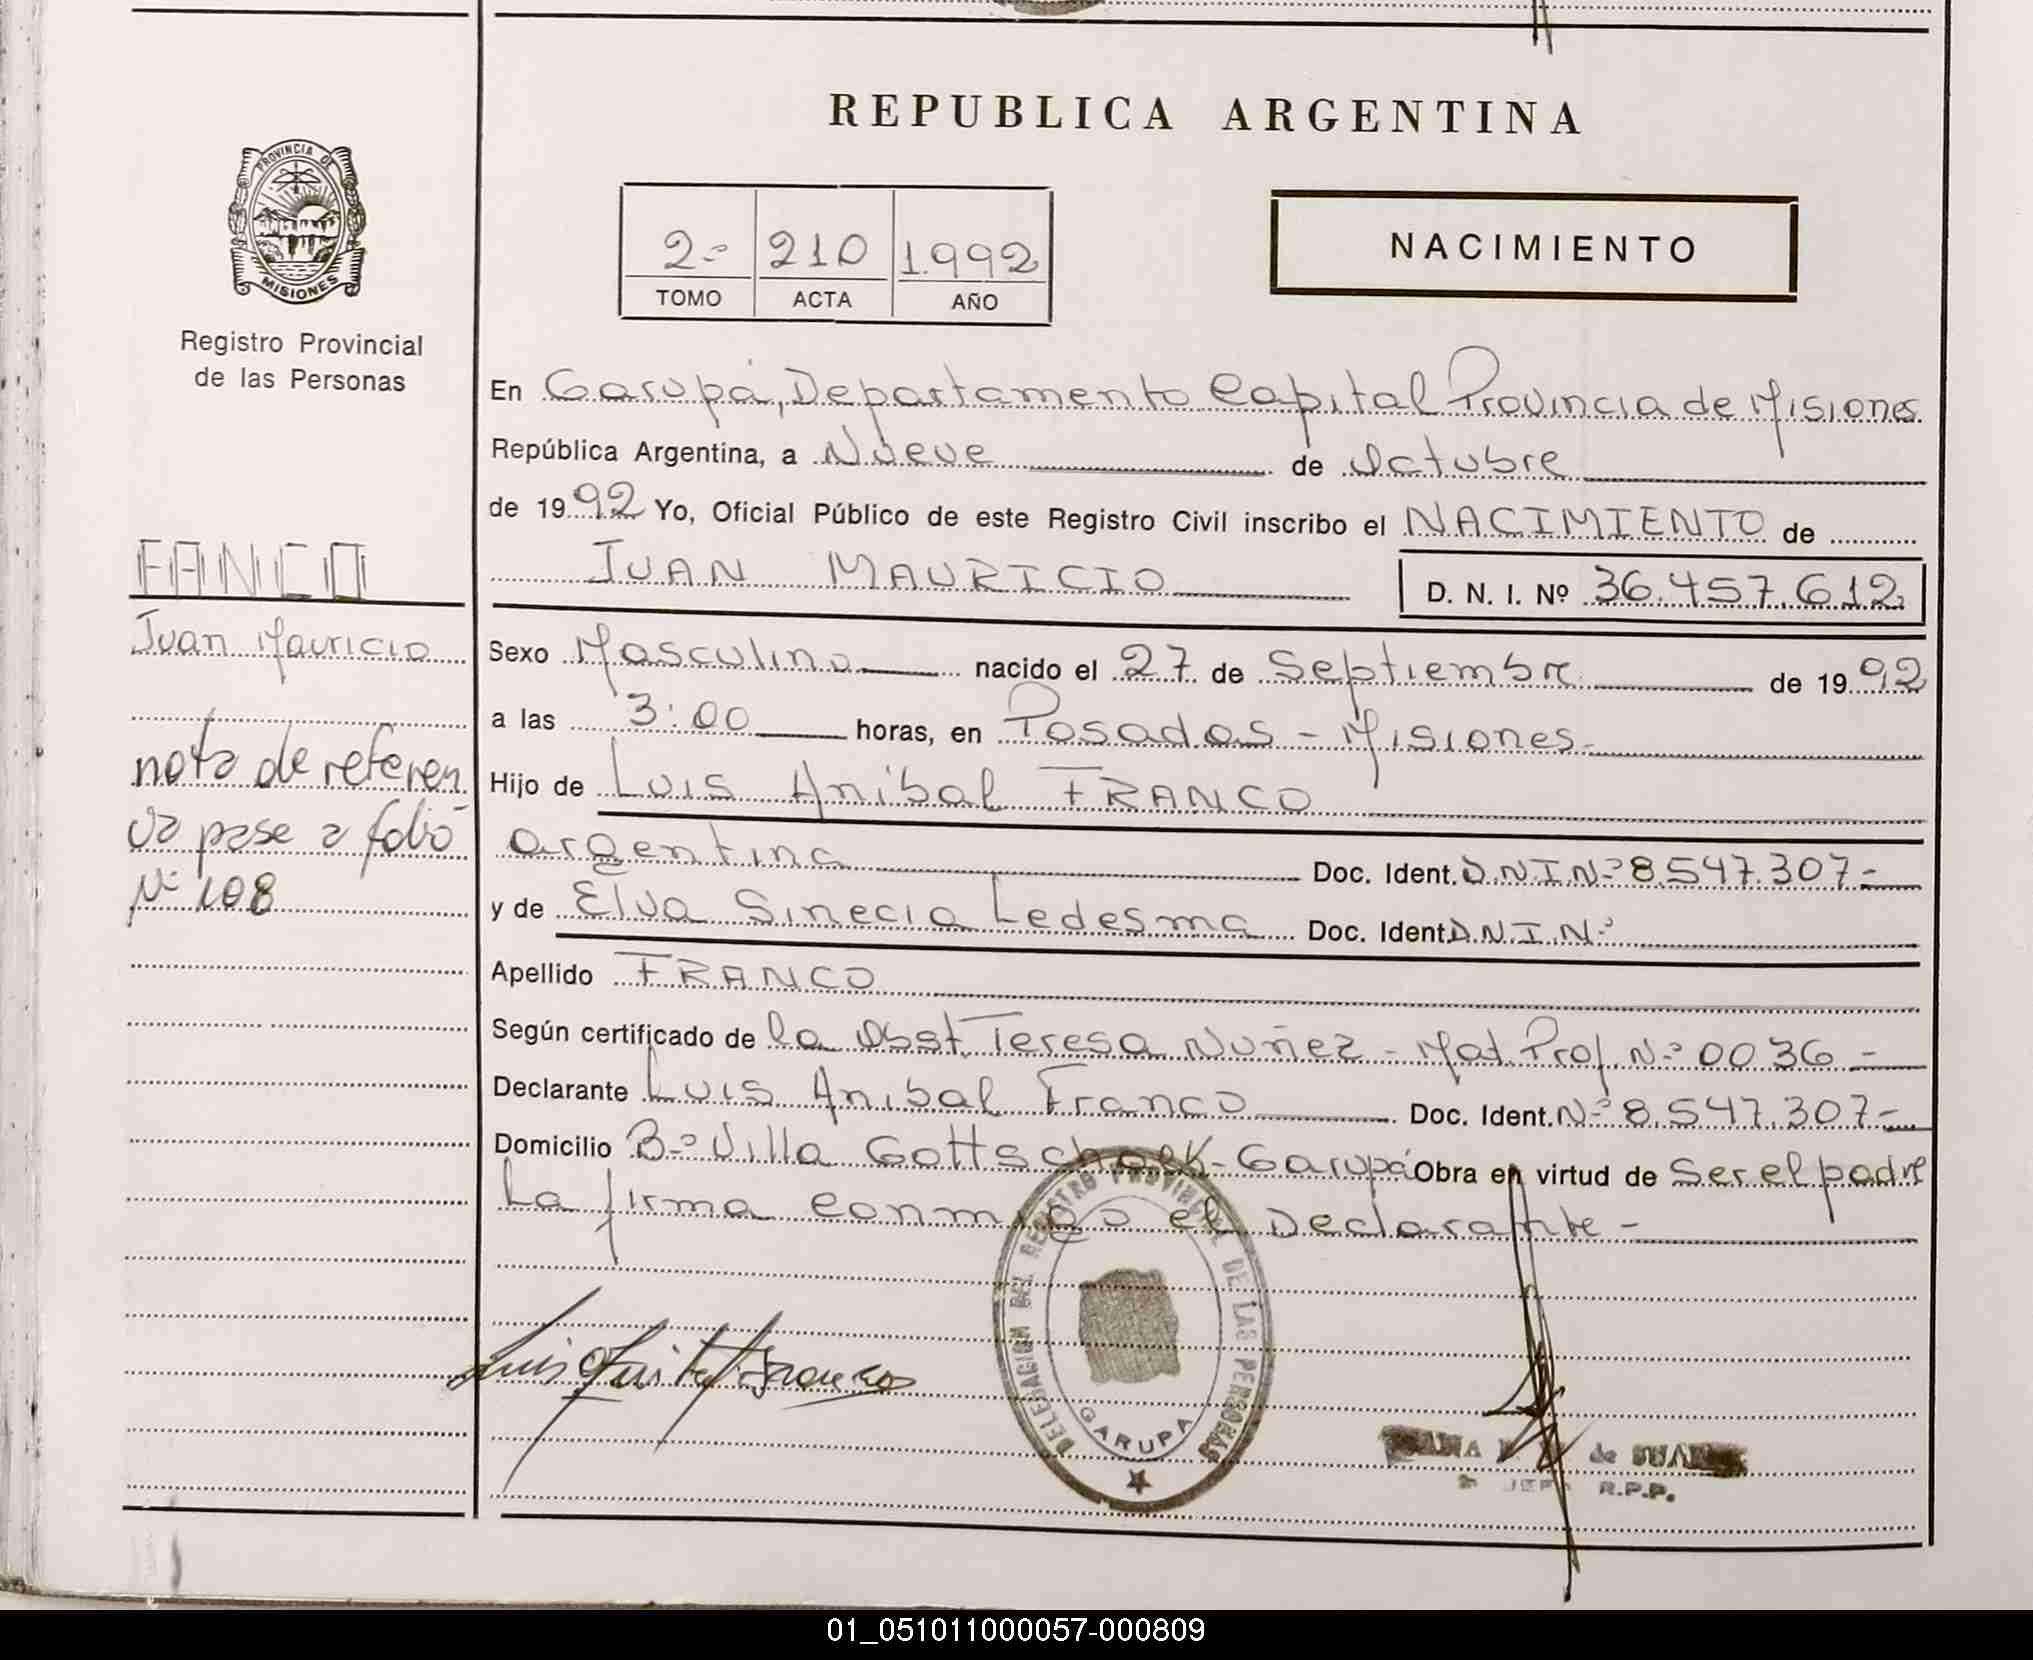 REPUBLICA ARGENTINA
PROVINCIA DE
MISIONES
Registro Provincial
de las Personas
2=
210
1992
TOMO
ACTA
AÑO
NACIMIENTO
En Garupá, Departamento Capital Provincia de Misiones
República Argentina, a Nueve de Octubre
de 1992 Yo, Oficial Público de este Registro Civil inscribo el NACIMIENTO de
JUAN MAURICIO
D. N. I. Nº 36.457.612
Sexo Masculino nacido el 27 de Septiembre de 1992
a las 3:00 horas, en Posadas - Misiones-
Hijo de Luis Anibal FRANCO
argentina Doc. Ident. D.N.I.Nº 8.547.307-
y de Elva Sinecia Ledesma Doc. Ident. D.N.I.Nº
Apellido FRANCO
Según certificado de la Obst. Teresa Nuñez - Mat. Prof. Nº 0036 -
Declarante Luis Anibal Franco Doc. Ident. Nº 8.547.307-
Domicilio Bº Villa Gottschalk - Garupá Obra en virtud de Ser el padre
La firma conmigo el Declarante -
FANCO
Juan Mauricio
nota de referen
cia pase a folio
Nº 108
Luis Franco
DELEGACION DEL REGISTRO PROVINCIAL DE LAS PERSONAS
GARUPA
de SUAREZ
JEFE R.P.P.
01_051011000057-000809